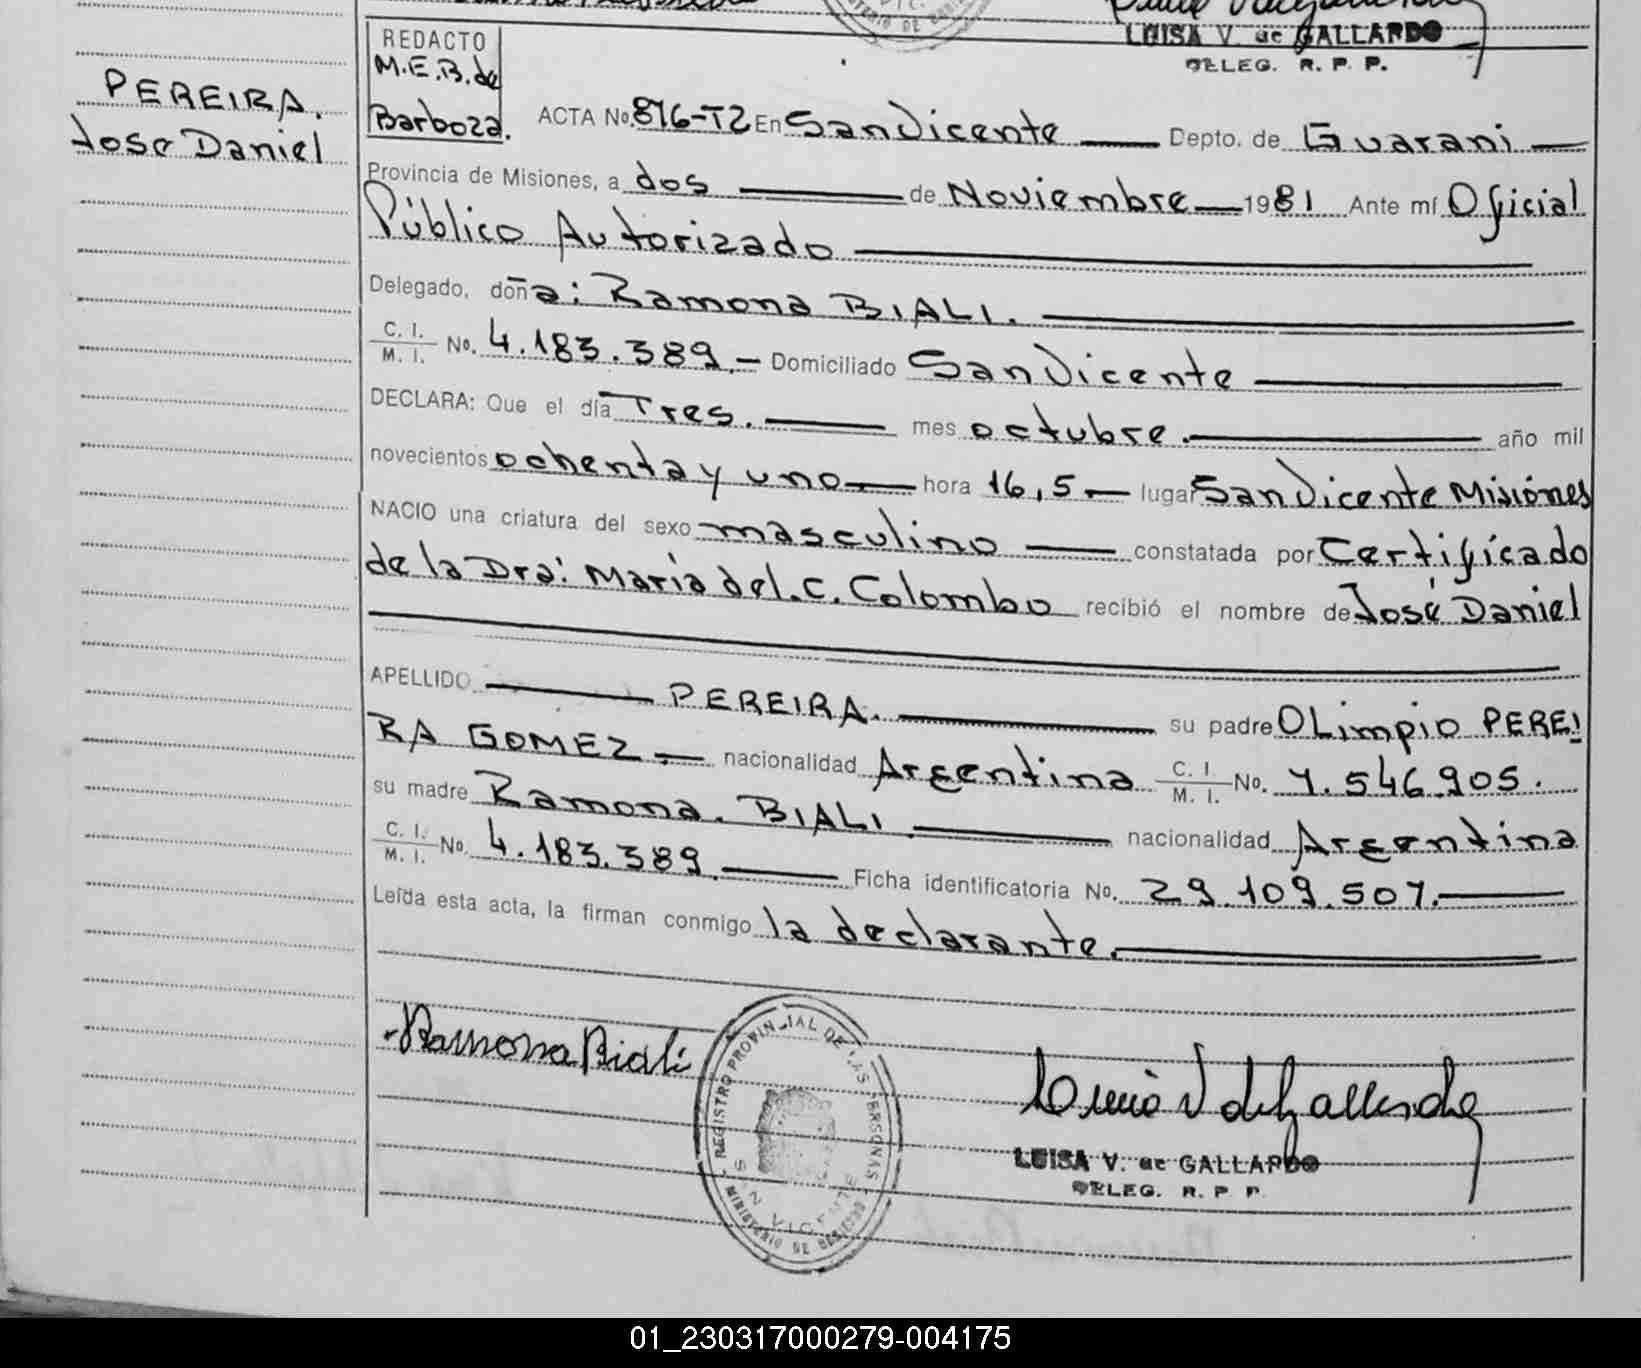 LUISA V. de GALLARDO
DELEG. R. P. P.
REDACTO
M.E.B. de
Barboza.
PEREIRA.
Jose Daniel
ACTA No. 876-T2 En San Vicente Depto. de Guarani
Provincia de Misiones, a dos de Noviembre 1981 Ante mí Oficial
Público Autorizado
Delegado, doña: Ramona BIALI.
C. I. M. I. No. 4.183.389.- Domiciliado San Vicente
DECLARA: Que el día Tres. mes octubre. año mil
novecientos ochenta y uno hora 16,5 lugar San Vicente Misiones
NACIO una criatura del sexo masculino constatada por Certificado
de la Dra: María del.C. Colombo recibió el nombre de José Daniel
APELLIDO PEREIRA. su padre OLimpio PEREI
RA GOMEZ.- nacionalidad Argentina C. I. M. I. No. 7.546.905.
su madre Ramona. BIALI nacionalidad Argentina
C. I. M. I. No. 4.183.389. Ficha identificatoria No. 29.109.507.
Leída esta acta, la firman conmigo la declarante.
Ramona Biali
REGISTRO PROVINCIAL DE LAS PERSONAS
SAN VICENTE
MINISTERIO DE GOBIERNO
Luisa V de Gallardo
LUISA V. de GALLARDO
DELEG. R. P. P.
01_230317000279-004175